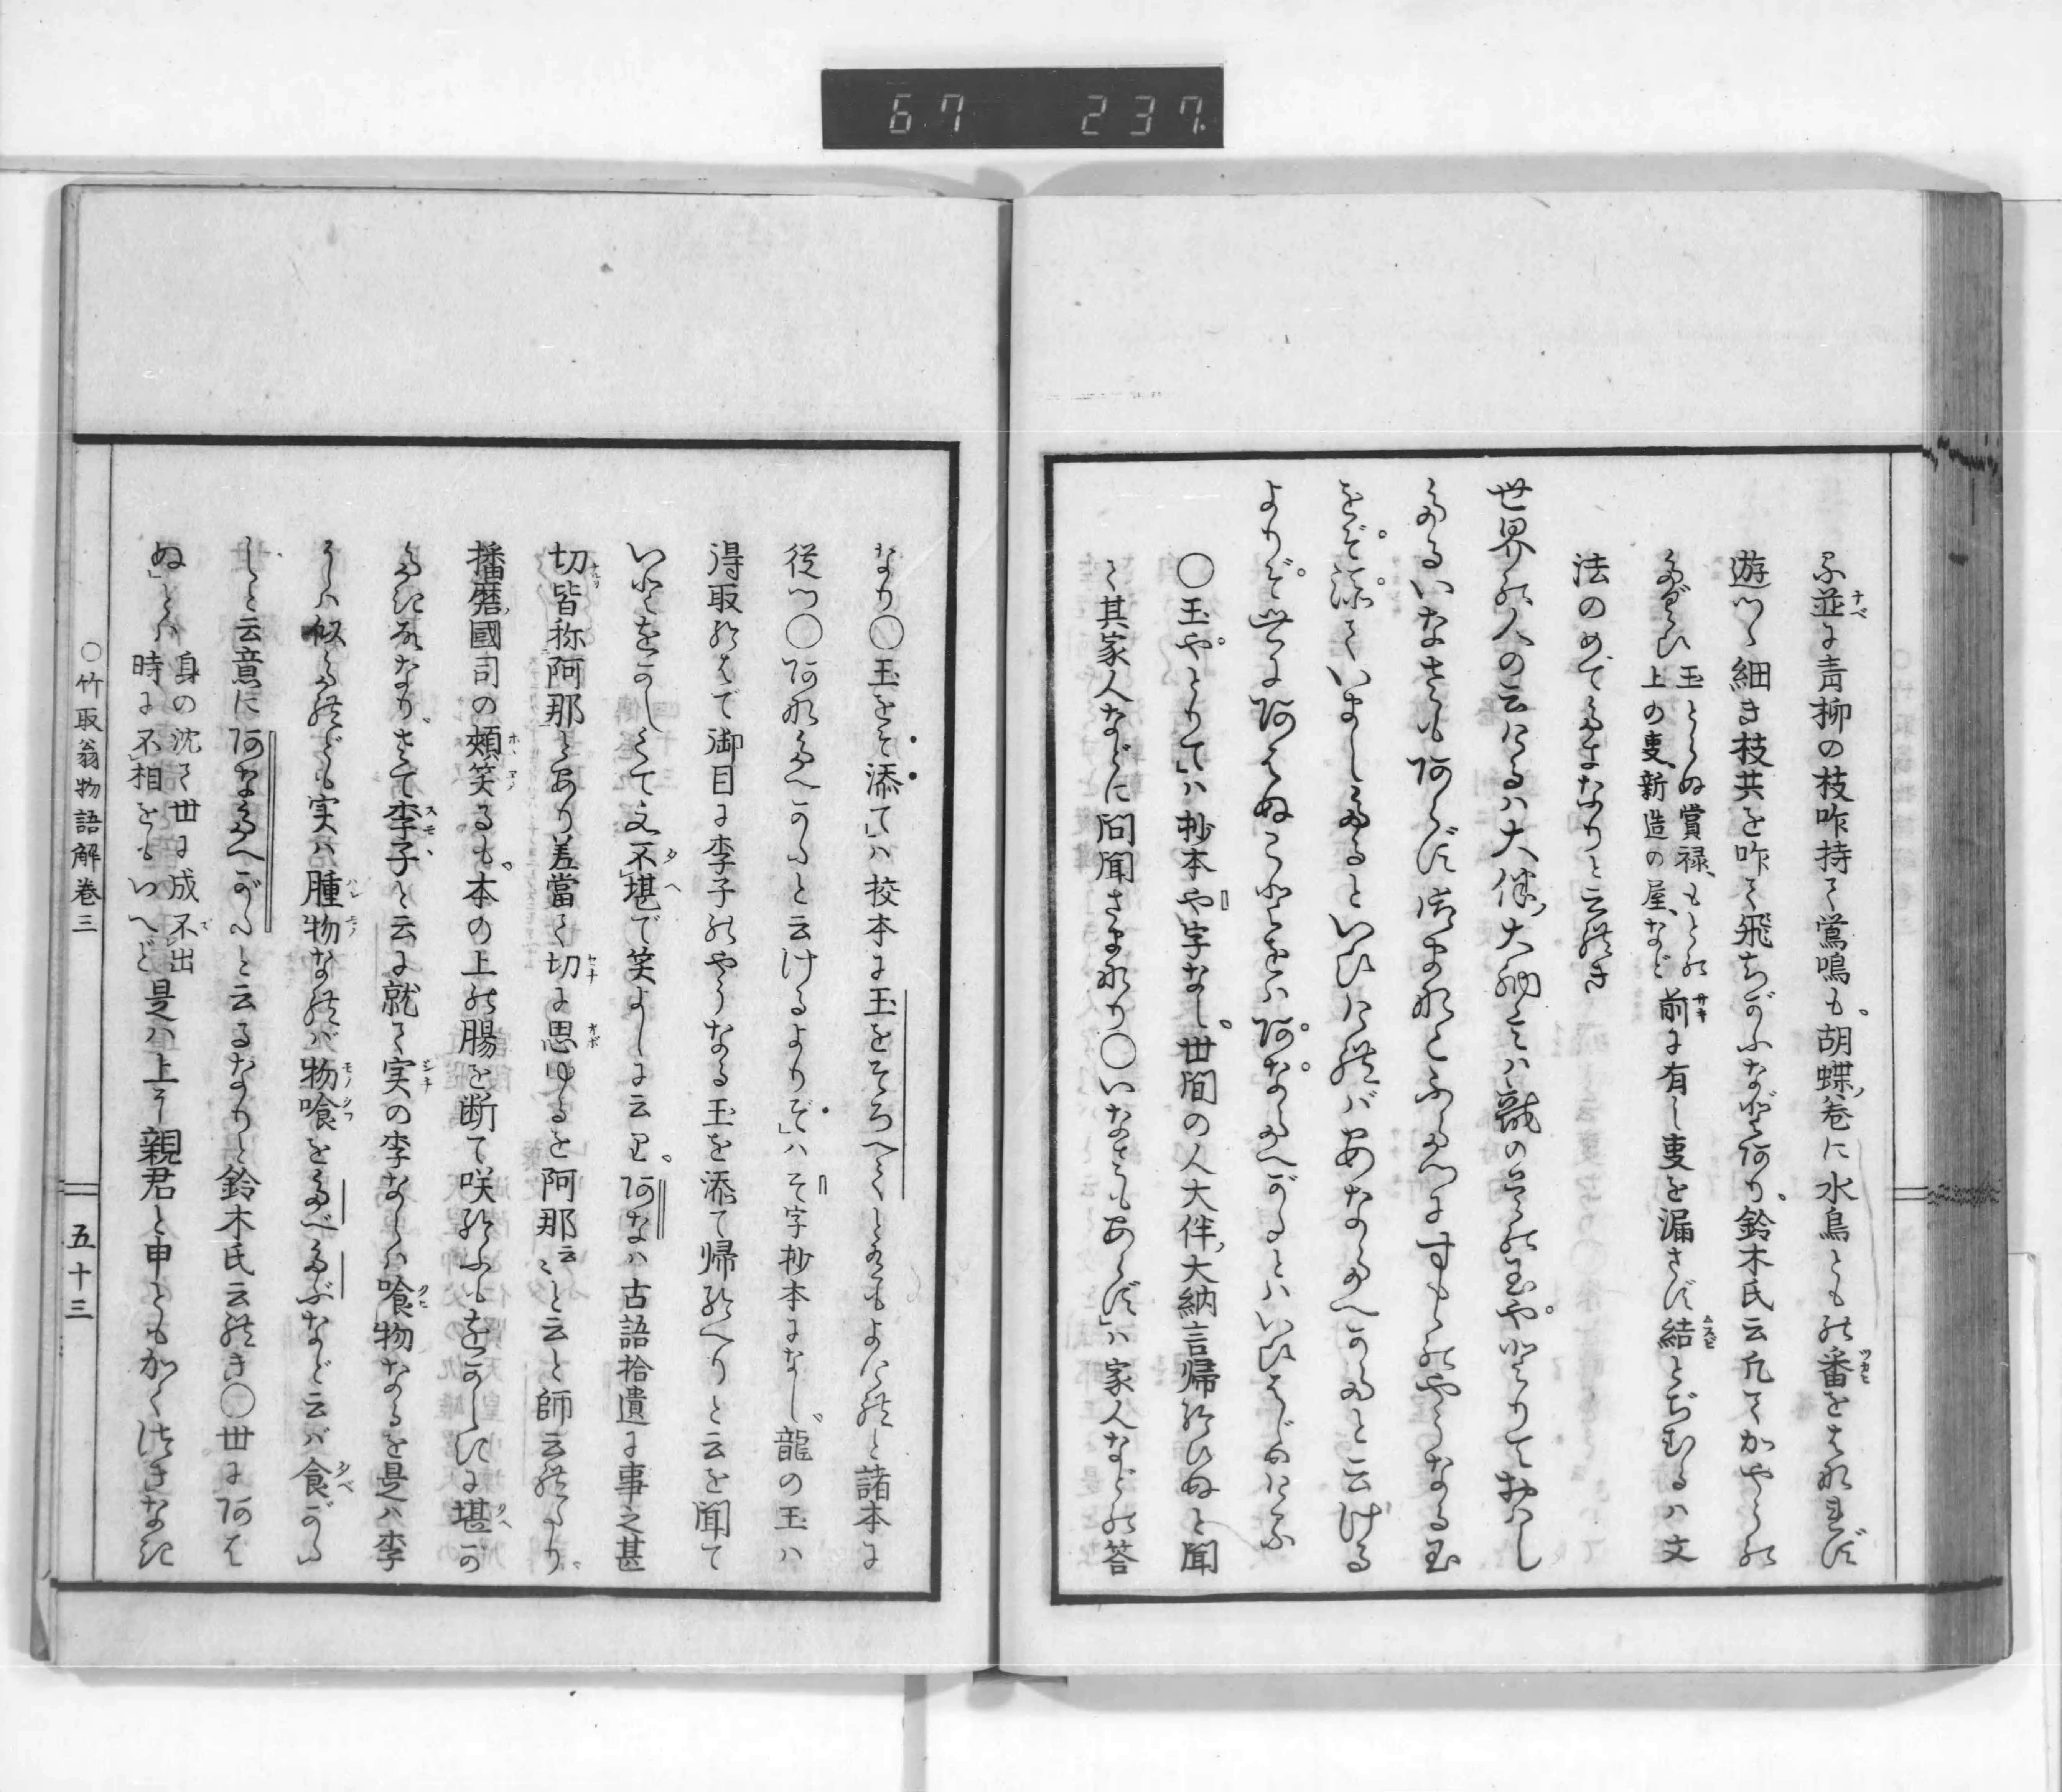 67 237.
ふ並に青柳の枝咋持て鶯鳴も。胡蝶ノ巻に水鳥ともの番をはなれず
遊つゝ細き枝共を咋て飛ちがふなどあり。鈴木氏云凡てかやうの
たぐひ玉とらぬ賞禄、もとの上の叓、新造の屋、など前に有し叓を漏さず結とぢむるハ文
法のめでたきなりと云れき
世界の人の云けるハ大伴ノ大納言ハ龍の首の玉やとりておはし
たるいなさもあらず御まなこふたつにすもゝのやうなる玉
をぞ添ていましたるといひければあなたへがたと云ける
よりぞ世にあはぬことをハあなたへがたとハいひはじめける
〇玉やとりて」ハ抄本や字なし。世間の人大伴ノ大納言帰給ひぬと聞
て其家人などに問聞さまなり〇いなさもあらず」ハ家人などの答
なり〇玉をそ添て」ハ校本に玉をそろへてとあるもよけれと諸本に
従つ〇あなたへがたと云けるよりぞ」ハそ字抄本になし。龍の玉ハ
得取給はで御目に李子のやうなる玉を添て帰給へりと云を聞て
いとをかしくて又不堪で笑よしに云り。あなハ古語拾遺に事之甚
切皆称阿那とあり差當て切に思ゆるを阿那云〻と云と師云れたり。
播磨ノ國司の頰笑るも。本の上の腸を断て咲給ふもをかしきに堪か
たきなり。さて李子と云に就て実の李ならハ喰物なるを是ハ李
にハ似たれども実ハ腫物なれバ物喰をたべたぶなど云バ食がたし
しと云意にあなたへがたと云るなりと鈴木氏云れき〇世にあは
ぬ」とハ身の沈て世に成不出時に不相をもいへど是ハ上に親君と申ともかくつきなき
〇竹取翁物語解巻三
五十三